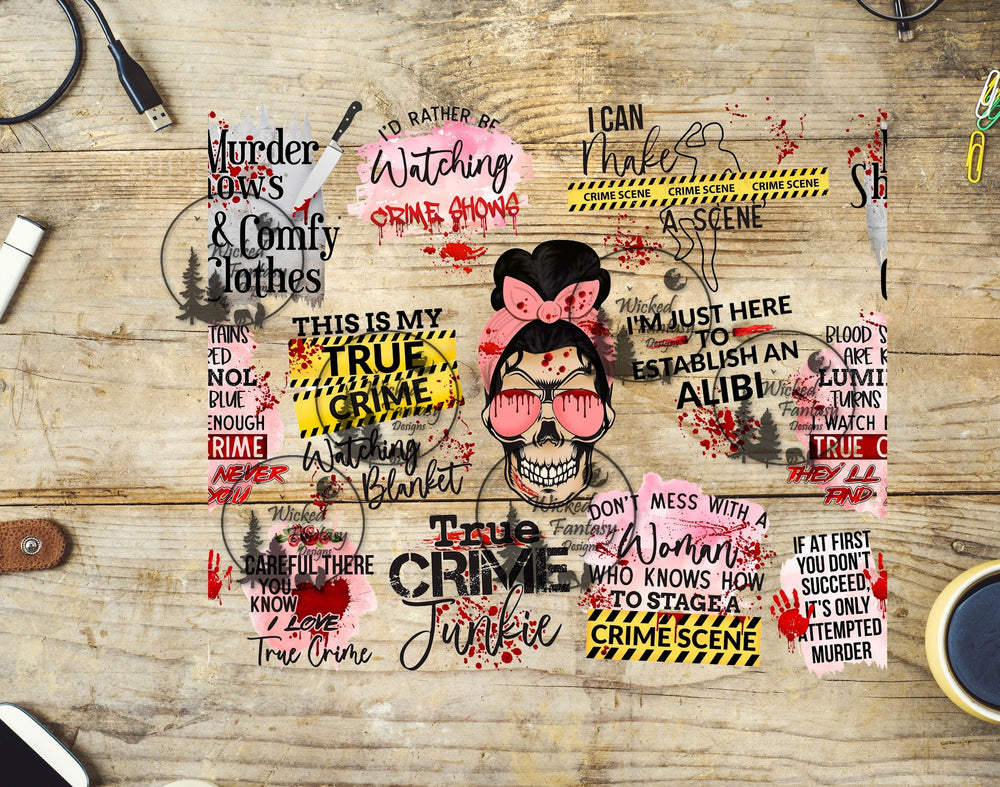 Murder
& Comfy
Clothes
I'D RATHER BE
Watching
CRIME SHOWS
I CAN
Make
CRIME SCENE CRIME SCENE CRIME SCENE
A SCENE
Sh
THIS IS MY
TRUE
CRIME
Watching
Blanket
I'M JUST HERE
TO
ESTABLISH AN
ALIBI
BLUE
ENOUGH
CRIME
NEVER
YOU
BLOOD S
ARE
LUMI
TURNS
WATCH
TRUE C
THEY'LL
FIND
CAREFUL THERE
YOU
KNOW
I LOVE
True Crime
True
CRIME
Junkie
DON'T MESS WITH A
Woman
WHO KNOWS HOW
TO STAGE A
CRIME SCENE
IF AT FIRST
YOU DON'T
SUCCEED,
IT'S ONLY
ATTEMPTED
MURDER
Wicked
Fantasy
Designs
Wicked
Wicked
Fantasy
Designs
Wicked
Fantasy
Designs
Wicked
Fantasy
Designs